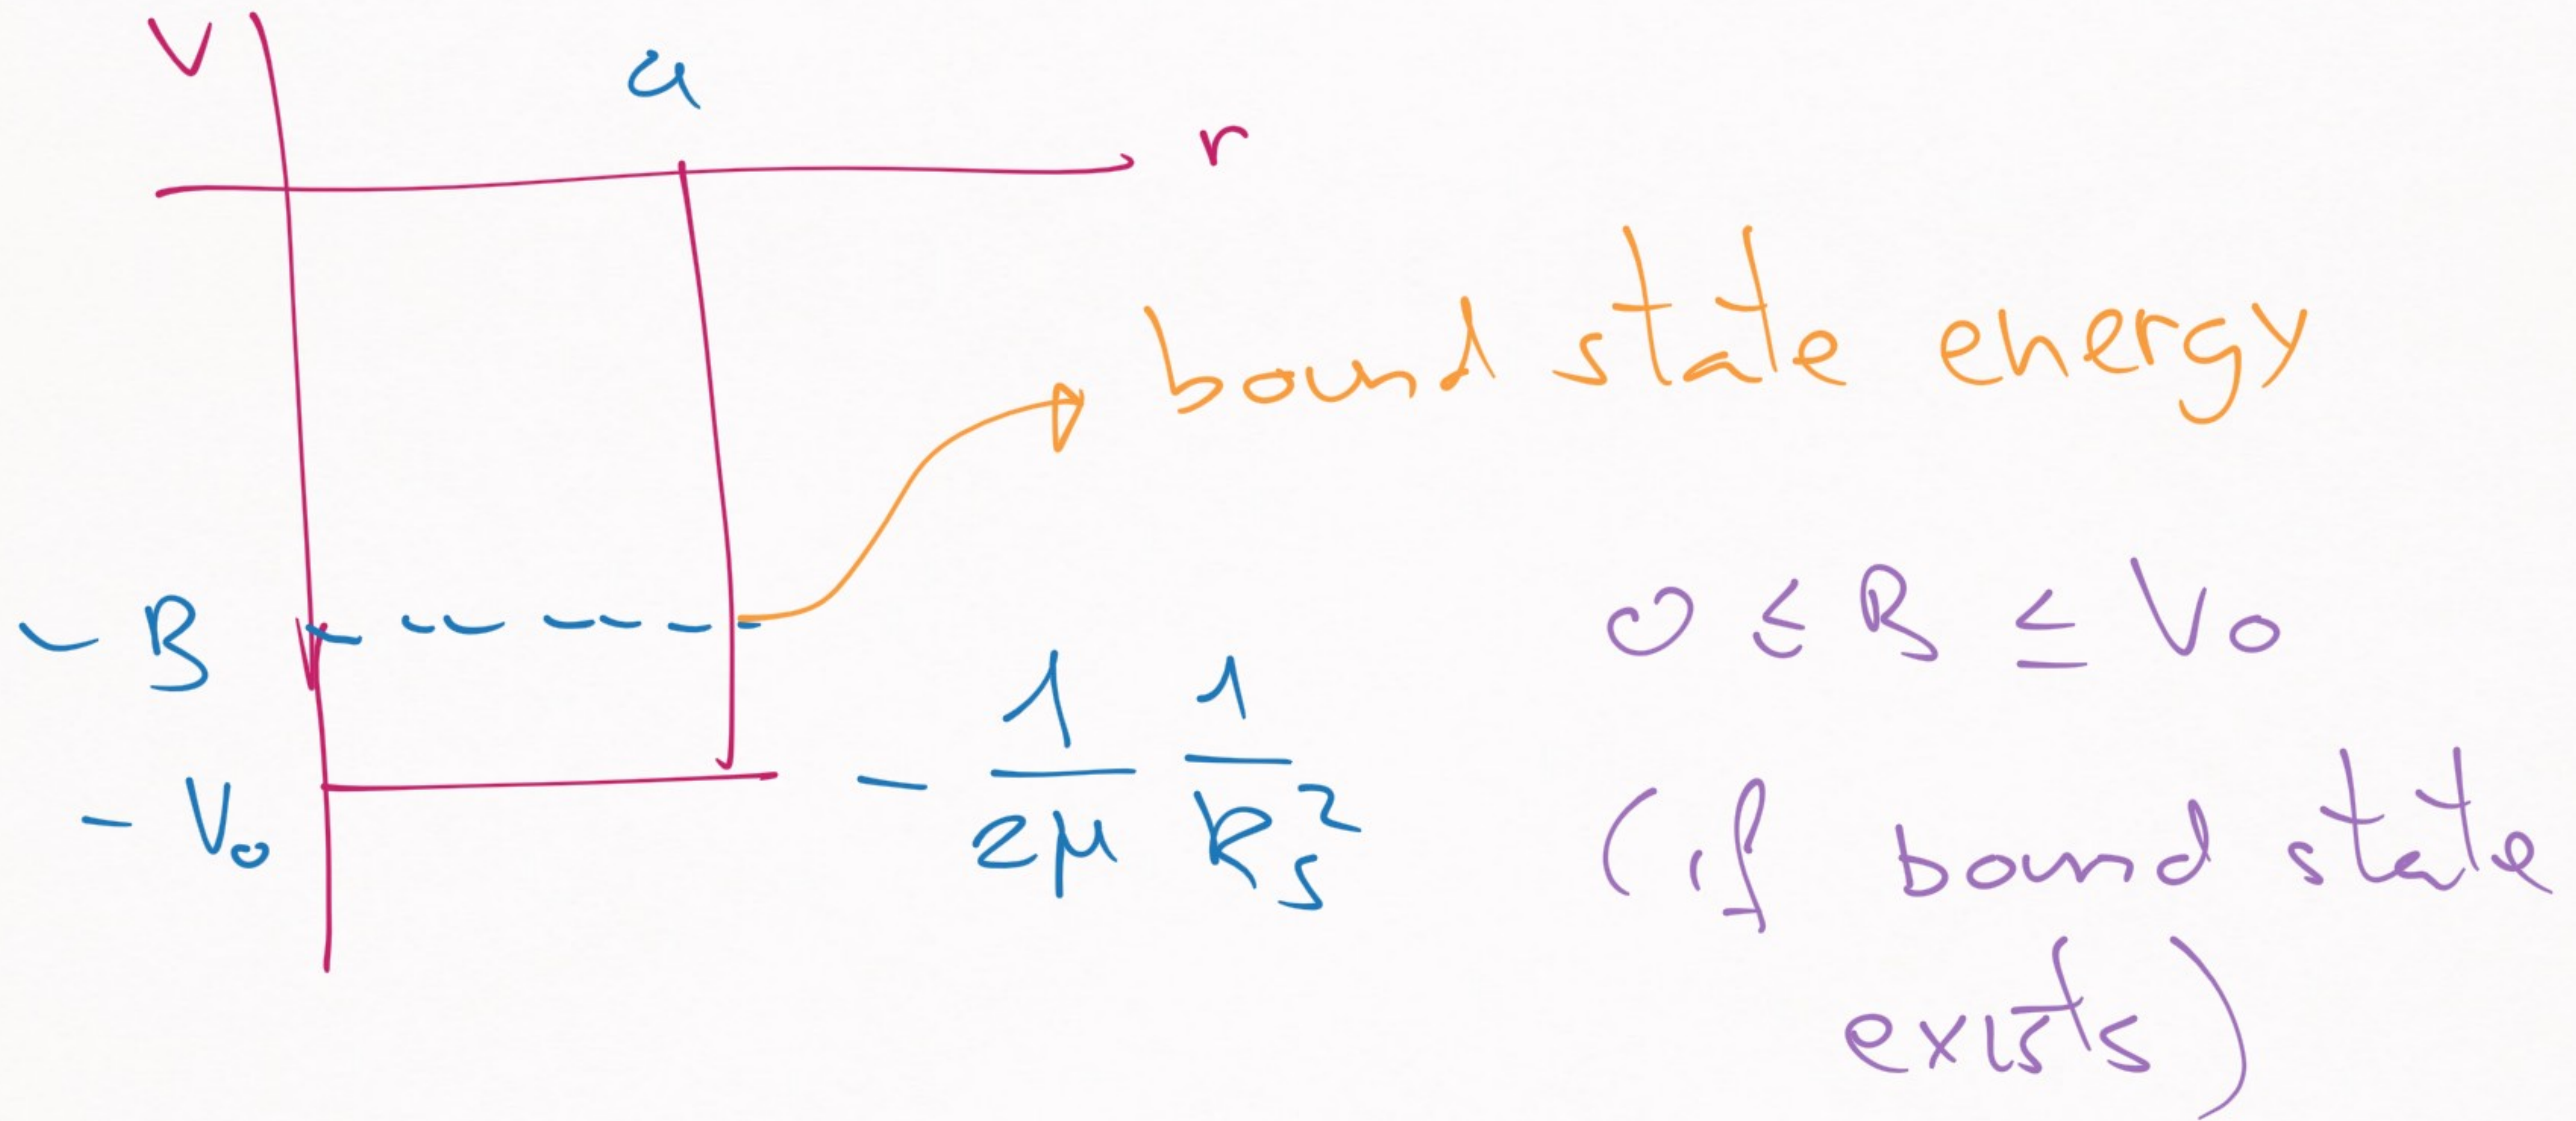 V
a
r
bound state energy
- B
0 ≤ B ≤ V₀
- V₀
- 1/2μ 1/R_s²
(if bound state
exists)